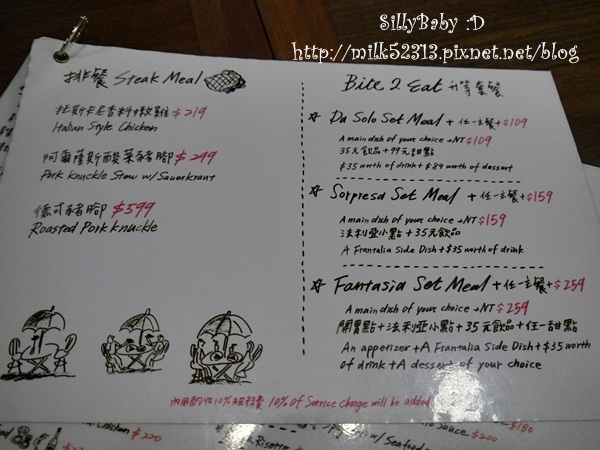 SillyBaby :D
http://milk52313.pixnet.net/blog
排餐 Steak Meal
托斯卡尼香料嫩雞 $219
Italian Style Chicken
阿爾薩斯酸菜豬腳 $299
Pork Knuckle Stew w/ Sauerkraut
德式豬腳 $599
Roasted Pork Knuckle
Bite 2 Eat 升等套餐
Da Solo Set Meal + 任一主餐 + $109
A main dish of your choice + NT $109
35元飲品 + 99元甜點
$35 worth of drink + $89 worth of dessert
Sorpresa Set Meal + 任一主餐 + $159
A main dish of your choice + NT $159
法利亞小點 + 35元飲品
A Frantalia Side Dish + $35 worth of drink
Fantasia Set Meal + 任一主餐 + $259
A main dish of your choice + NT $259
開胃點 + 法利亞小點 + 35元飲品 + 任一甜點
An appetizer + A Frantalia Side Dish + $35 worth
of drink + A dessert of your choice
內用酌收10%服務費 10% of Service Charge will be added
Chicken $220
Risotto
w/ Seafood
Sauce $200
$180